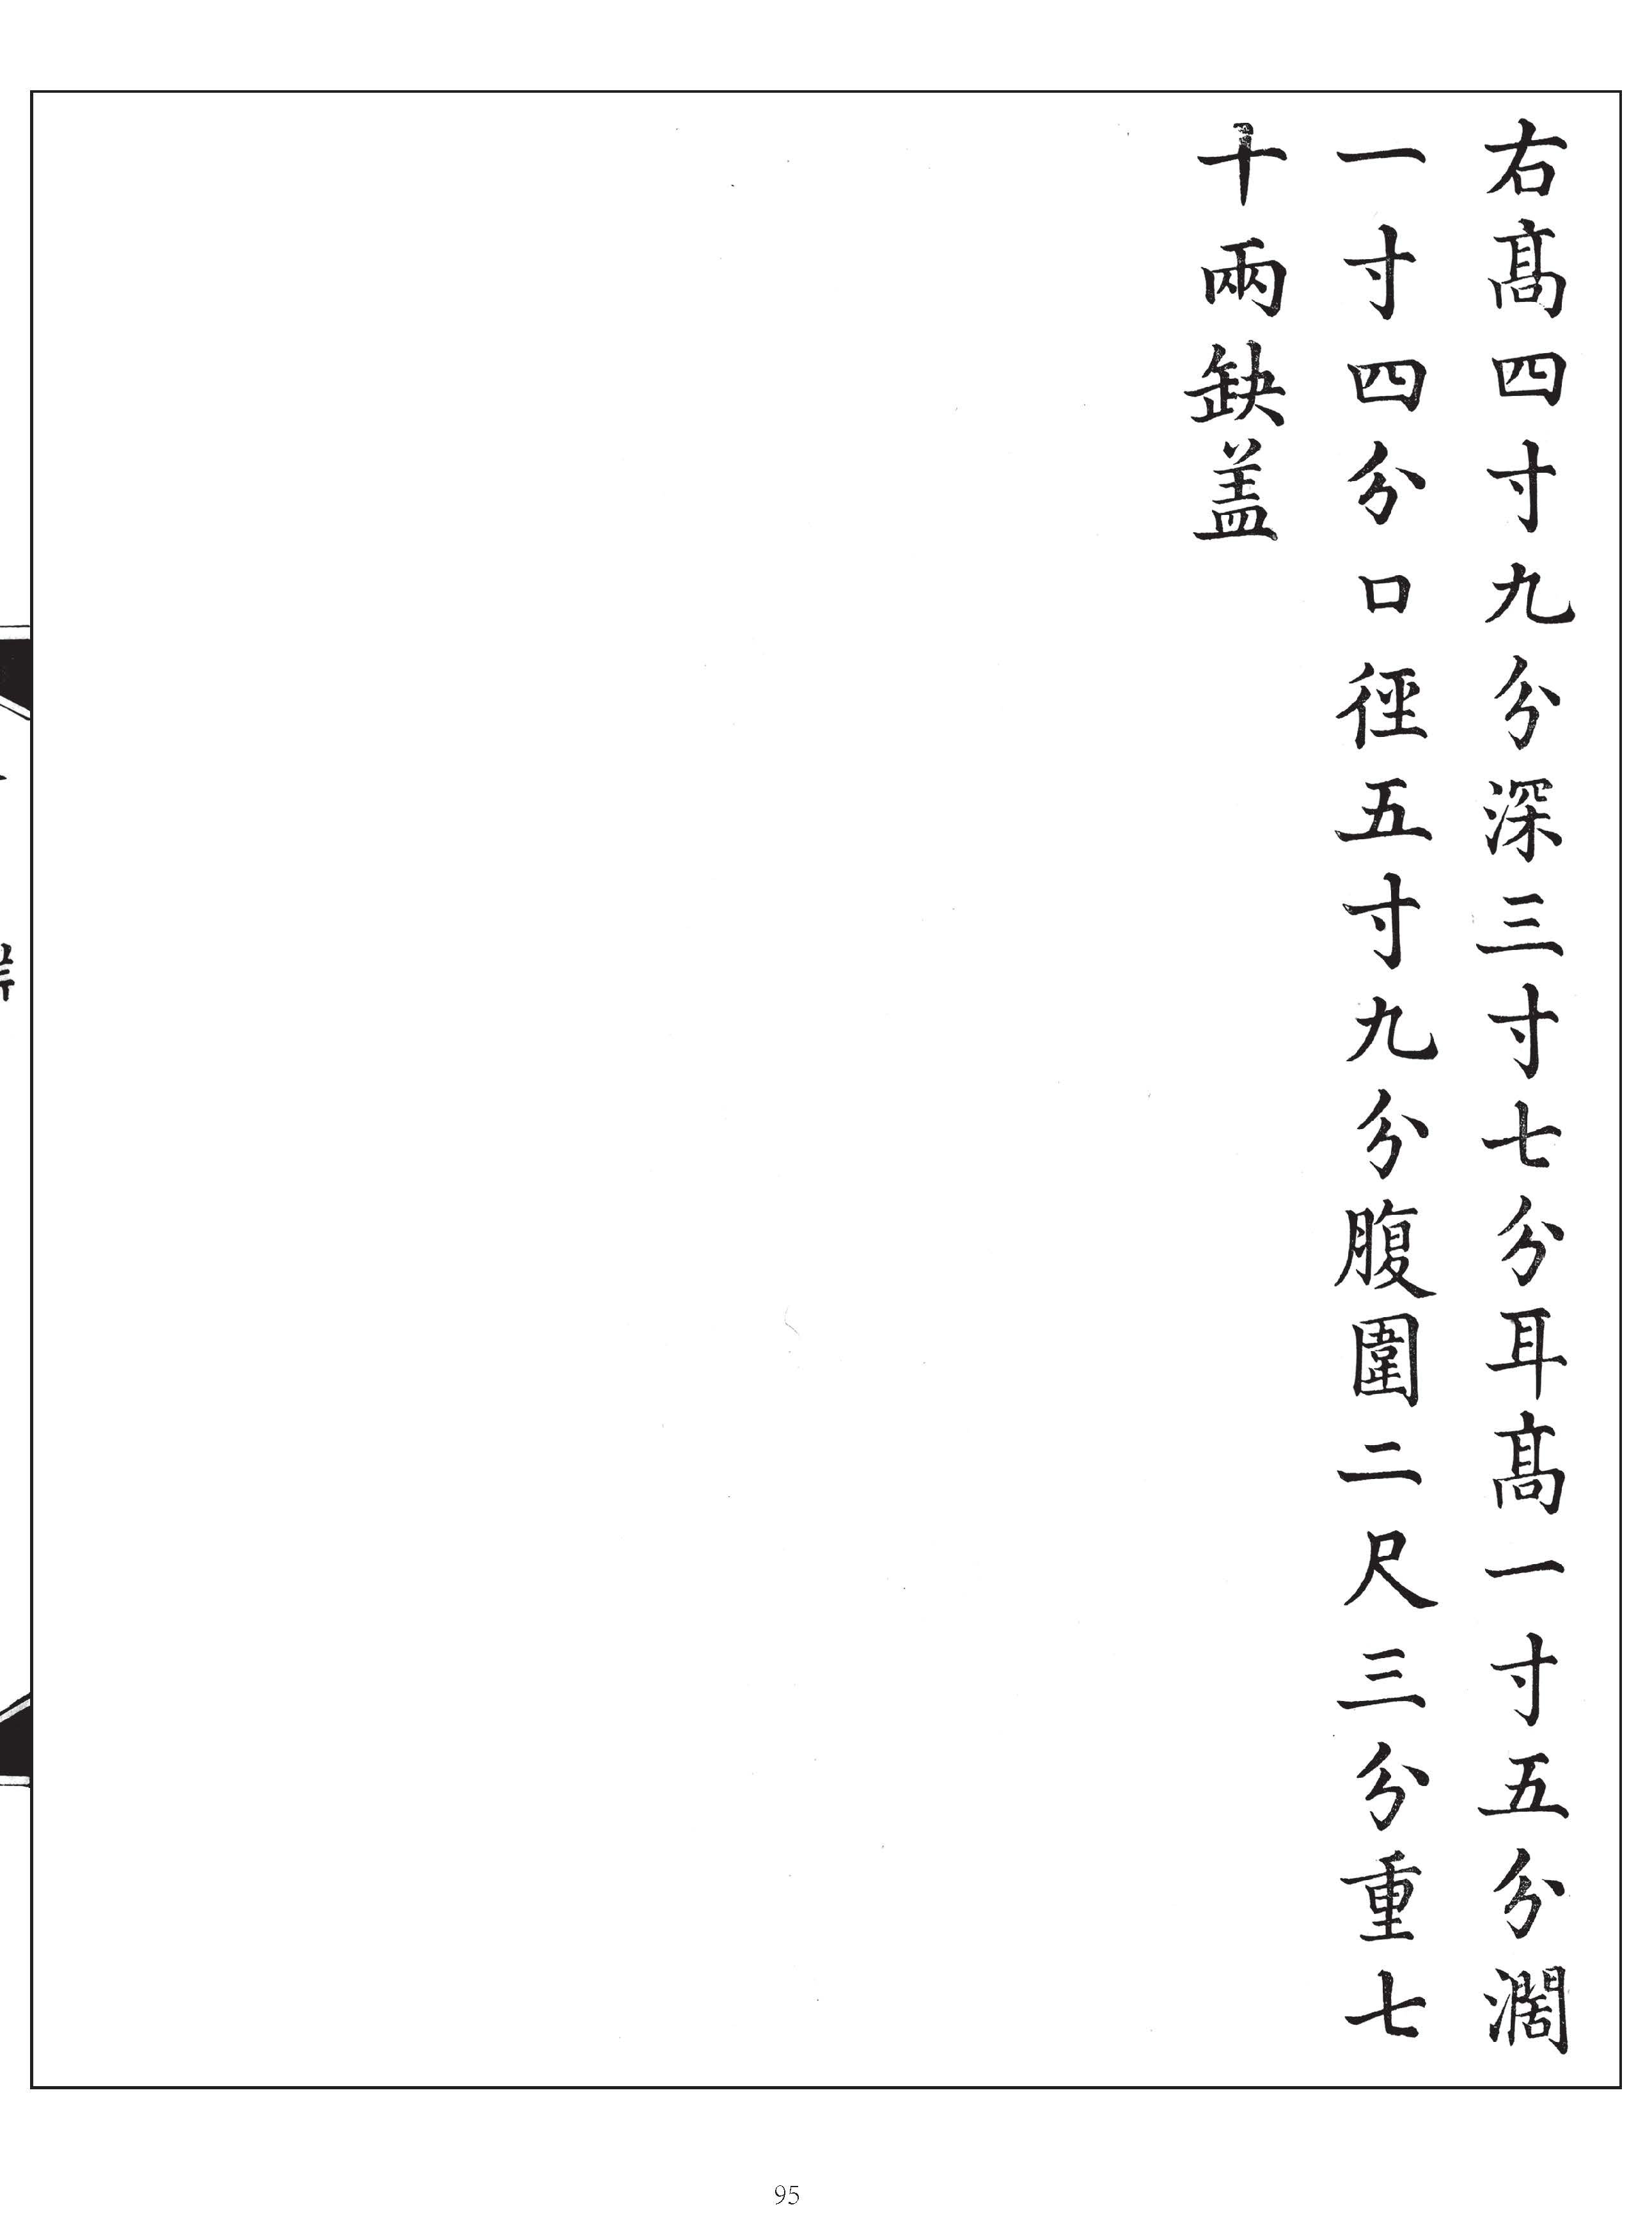 右髙四寸九分深三寸七分耳髙一寸五分濶
一寸四分口徑五寸九分腹圍二尺三分重七
十兩缺葢
95